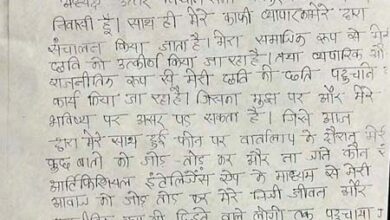 निवासी हूँ। साथ ही मेरे काफी व्यापार मेरे द्वारा
संचालन किया जाता है। मेरा समाधिक रूप से मेरी
छति को उत्कीर्ण किया जा रहा है। तथा व्यपारिक और
राजनीतिक रूप से मेरी छति को छति पहुँचाने
कार्य किया जा रहा है। जिसका मुझ पर और मेरे
भविष्य पर असर पड़ सकता है। जिसे आज
द्वारा मेरे साथ हुई फोन पर वार्तालाप के दौरान मेरे
कुछ बातों को जोड़-तोड़ कर और ना जाने कौन है
आर्टिफिशियल इंटेलिजेंस ऐप के माध्यम से मेरी
आवाज को जोड़ तोड़ कर मेरे निजी जीवन और
वाले लोगों तक पहुंचाया।